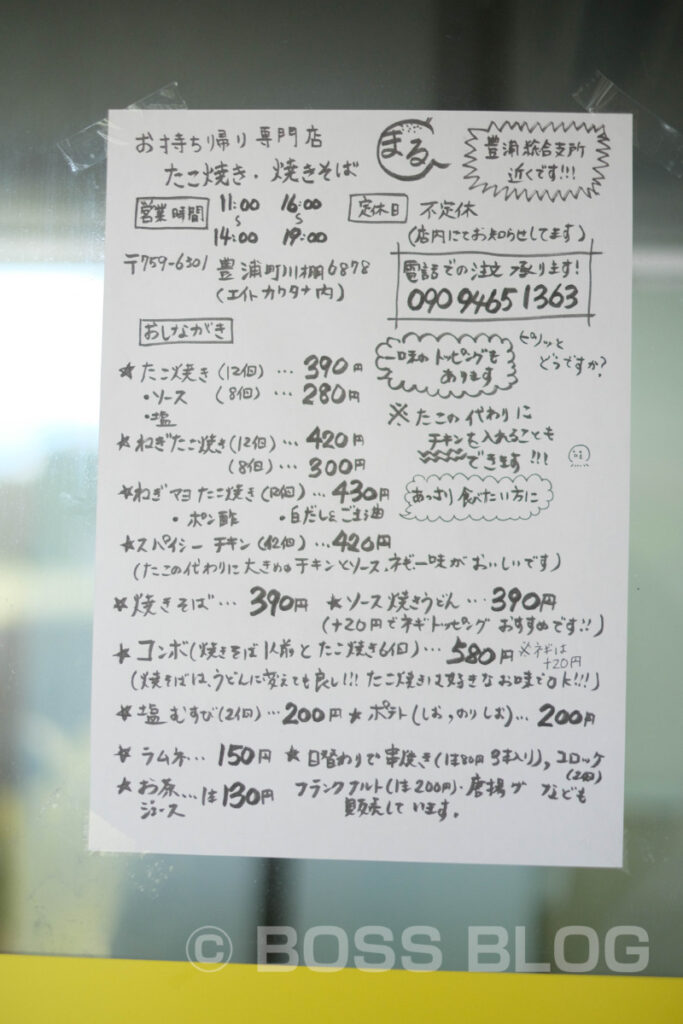 お持ち帰り専門店
まる
たこ焼き・焼きそば
豊浦総合支所
近くです!!!
営業時間 11:00 16:00
〜 〜
14:00 19:00
定休日 不定休
(店内にてお知らせしてます)
〒759-6301 豊浦町川棚6878
(エイトカワタナ内)
電話での注文承ります!
090 9465 1363
おしながき
★たこ焼き(12個)…390円
・ソース (8個)…280円
・塩
一味のトッピングも
あります
ピリッと
どうですか?
※たこの代わりに
チキンを入れることも
できます!!!
★ねぎたこ焼き(12個)…420円
(8個)…300円
★ねぎマヨたこ焼き(12個)…430円
・ポン酢 ・白だしとごま油
あっさり食べたい方に
★スパイシーチキン(12個)…420円
(たこの代わりに大きめのチキンとソース、ネギ、一味がおいしいです)
★焼きそば…390円 ★ソース焼きうどん…390円
(+20円でネギトッピングおすすめです!!)
★コンボ(焼きそば1人前とたこ焼き6個)…580円 ※ネギは
+20円
(焼きそばは、うどんに変えても良し!!! たこ焼きは好きなお味でOK!!!)
★塩むすび(2個)…200円 ★ポテト(しお,のりしお)…200円
★ラムネ…150円 ★日替わりで串焼き(1本80円 3本入り),コロッケ
(2個)
★お茶…1本130円 フランクフルト(1本200円)・唐揚げなども
ジュース 販売しています。
© BOSS BLOG